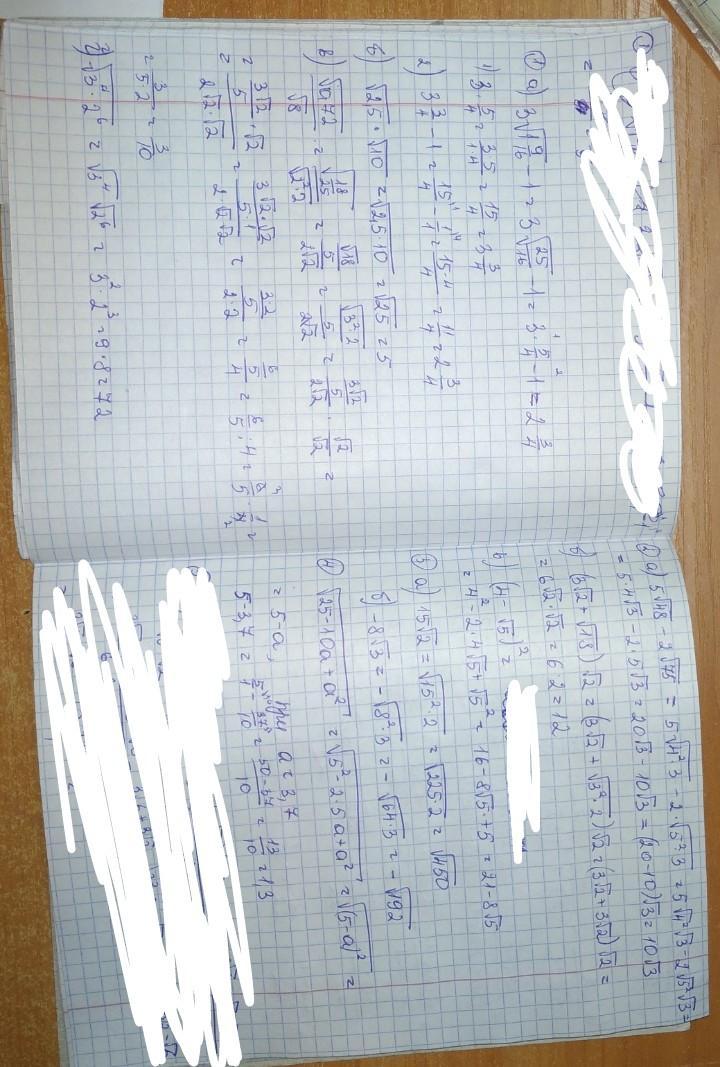 ① а) 3√(1 9/16) − 1 = 3√(25/16) − 1 = 3 · 5/4 − 1 = 2 3/4
1) 3 · 5/4 = 3·5/1·4 = 15/4 = 3 3/4
2) 3 3/4 − 1 = 15/4 − 1/1 = 15−4/4 = 11/4 = 2 3/4
б) √2,5 · √10 = √2,5·10 = √25 = 5
в) √0,72/√8 = √(18/25)/√(2²·2) = (√18/5)/2√2 = (√(3²·2)/5)/2√2 = (3√2/5)/2√2 · √2/√2 =
= (3√2/5 · √2)/(2√2·√2) = (3√2·√2/5·1)/(2·√2√2) = (3·2/5)/(2·2) = (6/5)/4 = 6/5 : 4 = 6/5 · 1/4 =
= 3/5·2 = 3/10
г) √(3⁴·2⁶) = √3⁴ √2⁶ = 3² · 2³ = 9·8 = 72
② а) 5√48 − 2√75 = 5√(4²·3) − 2·√(5²·3) = 5√4²√3 − 2√5²√3 =
= 5·4√3 − 2·5√3 = 20√3 − 10√3 = (20−10)√3 = 10√3
б) (3√2 + √18) √2 = (3√2 + √(3²·2))√2 = (3√2 + 3√2)√2 =
= 6√2·√2 = 6·2 = 12
в) (4 − √5)² =
= 4² − 2·4√5 + √5² = 16 − 8√5 + 5 = 21 − 8√5
③ а) 15√2 = √(15²·2) = √(225·2) = √450
б) −8√3 = −√(8²·3) = −√(64·3) = −√192
④ √(25−10a+a²) = √(5²−2·5a+a²) = √(5−a)² =
= 5−a, при a = 3,7
5−3,7 = 5/1 − 37/10 = 50−37/10 = 13/10 = 1,3